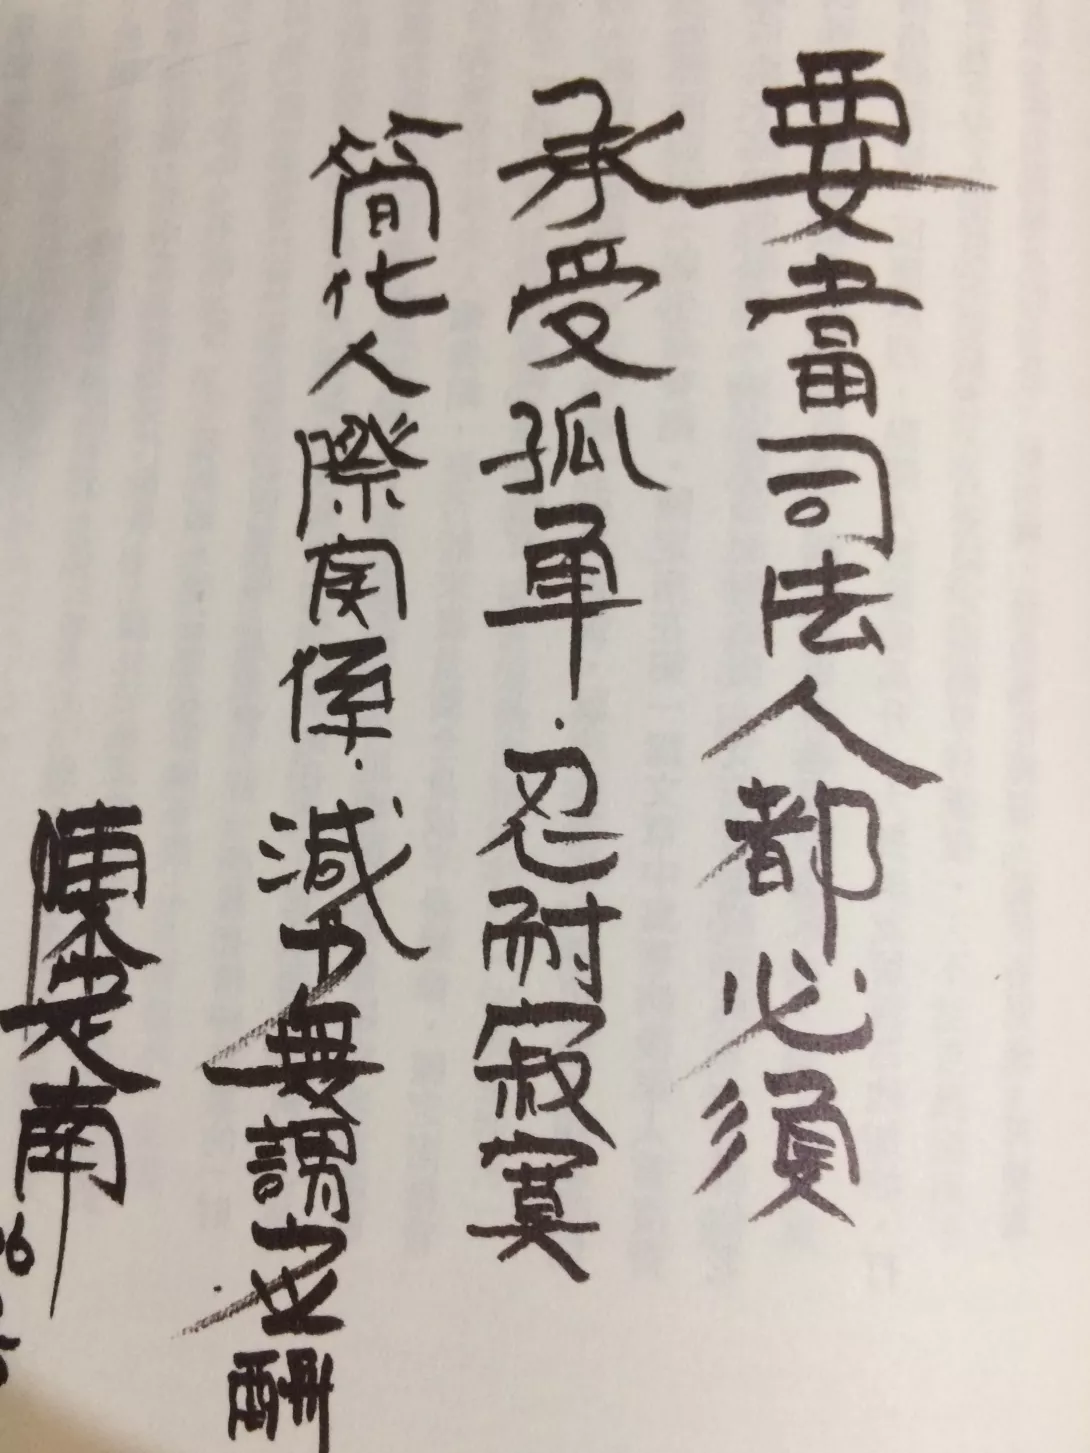 要當司法人都必須
承受孤單.忍耐寂寞
簡化人際関係.減少無謂應酬
陳定南